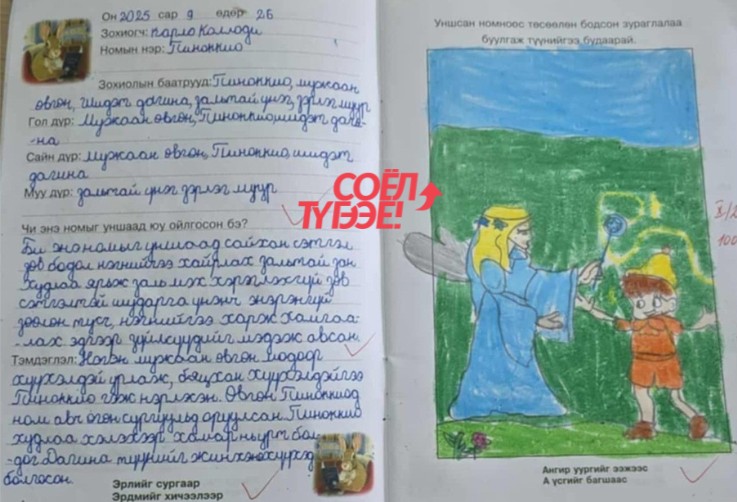 Он 2025 сар 9 өдөр 26
Зохиогч: Карло Коллоди
Номын нэр: Пиноккио
Зохиолын баатрууд: Пиноккио, мужаан
өвгөн, шидэт дагина, зальтай үнэг, зэрлэг муур
Гол дүр: Мужаан өвгөн, Пиноккио, шидэт даги-
-на
Сайн дүр: мужаан өвгөн, Пиноккио, шидэт
дагина
Муу дүр: зальтай үнэг зэрлэг муур
СОЁЛ
ТҮГЭЭЕ!
Чи энэ номыг уншаад юу ойлгосон бэ?
Би энэ номыг уншаад сайхан сэтгэл
зөв бодол нэгнийгээ хайрлах зальтай зан
худлаа ярьж заль мэх хэрэглэхгүй зөв
сэтгэлтэй шударга үнэнч энэрэнгүй
зөөлөн түсч, нэгнийгээ харж хамгаа-
-лах эдгээр зүйлсүүдийг мэдэж авсан.
Тэмдэглэл: Нэгэн мужаан өвгөн модоор
хүүхэлдэй урлаж, бяцхан хүүхэлдэйгээ
Пиноккио гэж нэрлжээ. Өвгөн Пиноккиод
ном авч өгөн сургуульд оруулсан Пиноккио
худлаа хэлэхээр хамар нь урт бол-
-дог Дагина түүнийг жинхэнэ хүүхэд
болгосон.
Эрлийг сургаар
Эрдмийг хичээлээр
Уншсан номноос төсөөлөн бодсон зураглалаа
буулгаж түүнийгээ будаарай.
Ангир уургийг ээжээс
А үсгийг багшаас